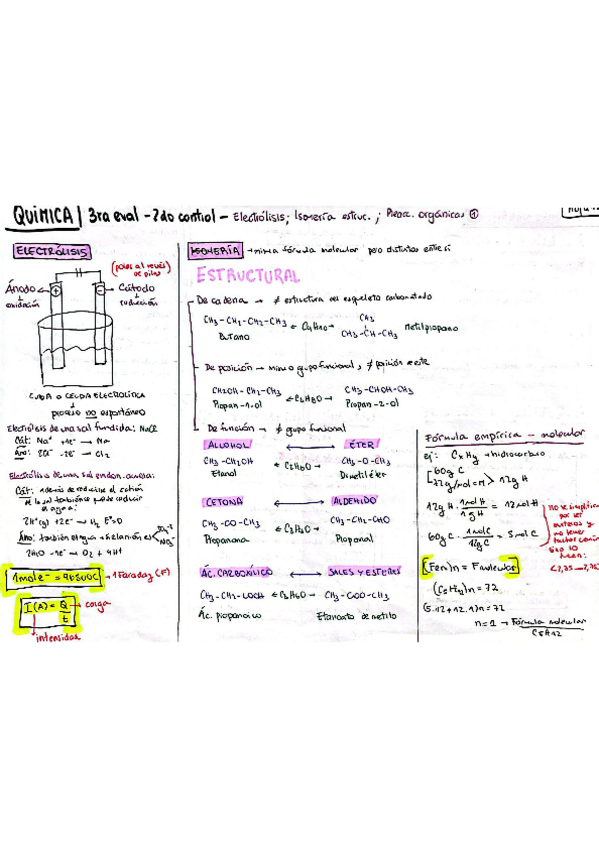 QUÍMICA | 3ra eval - 2do control - Electrólisis; Isomería estruc.; Reacc. orgánicas ①
ELECTRÓLISIS
(polos al revés)
de pilas
Ánodo → +
↓
oxidación
- ← Cátodo
↓
reducción
CUBA O CELDA ELECTROLÍTICA
↓
proceso no espontáneo
Electrólisis de una sal fundida: NaCl
Cát: Na⁺ + 1e⁻ → Na
Áno: 2Cl⁻ - 2e⁻ → Cl₂
Electrólisis de una sal en don. acuosa:
Cát: además de reducirse el catión
de la sal también se puede reducir
el agua:
2H⁺ + 2e⁻ → H₂ E°=0
Áno: también el agua
2H2O - 4e⁻ → O₂ + 4H⁺
1 mol e⁻ = 96500C → 1 Faraday (F)
I(A) = Q/t → carga
intensidad
ISOMERÍA → misma fórmula molecular pero distintos entre sí
ESTRUCTURAL
De cadena → ≠ estructura del esqueleto carbonatado
CH₃-CH₂-CH₂-CH₃ ← C₄H₁₀ → CH₃-CH-CH₃ Metilpropano
CH₃
Butano
De posición → mismo grupo funcional, ≠ posición de este
CH2OH-CH₂-CH₃ ← C₃H₈O → CH₃-CHOH-CH₃
Propan-1-ol Propan-2-ol
De función → ≠ grupo funcional
ALCOHOL ↔ ÉTER
CH₃-CH₂OH ← C₂H₆O → CH₃-O-CH₃
Etanol Dimetil éter
CETONA ↔ ALDEHIDO
CH₃-CO-CH₃ ← C₃H₆O → CH₃-CH₂-CHO
Propanona Propanal
ÁC. CARBOXÍLICO ↔ SALES Y ESTERES
CH₃-CH₂-COOH ← → CH₃-COO-CH₃
Ác. propanoico Etanoato de metilo
Fórmula empírica - molecular
ej: CxHy → hidrocarburo
60g C
72g/mol=M > 12g H
12g H · 1mol H / 1g H = 12mol H
60g C · 1mol C / 12g C = 5mol C
no se simplifica
por ser
enteros y
no tener
factor común
(Fem)n = F molecular
(C₅H₁₂)n = 72
(5·12+12·1)n = 72
n=1 → Fórmula molecular
C5H12